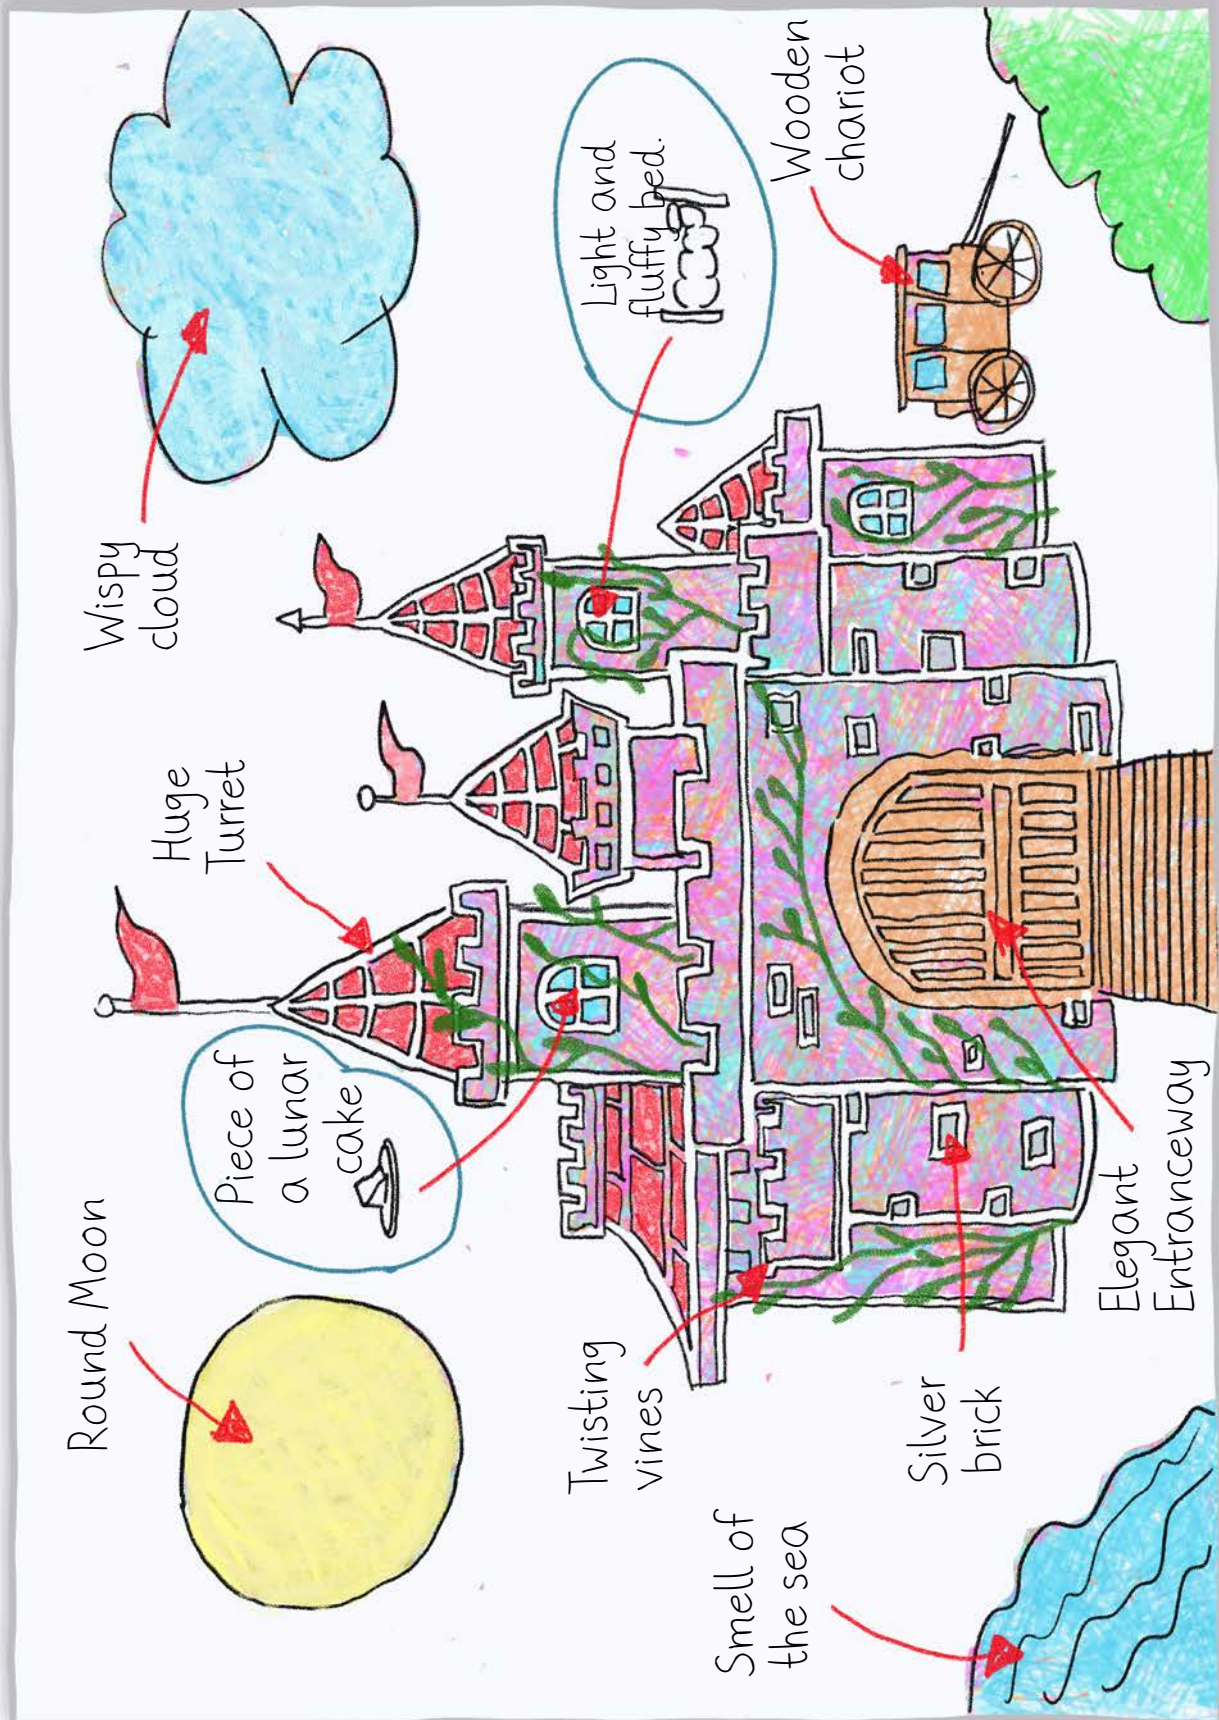 Round Moon
Piece of
a lunar
cake
Huge
Turret
Wispy
cloud
Light and
fluffy bed.
Wooden
chariot
Twisting
vines
Smell of
the sea
Silver
brick
Elegant
Entranceway